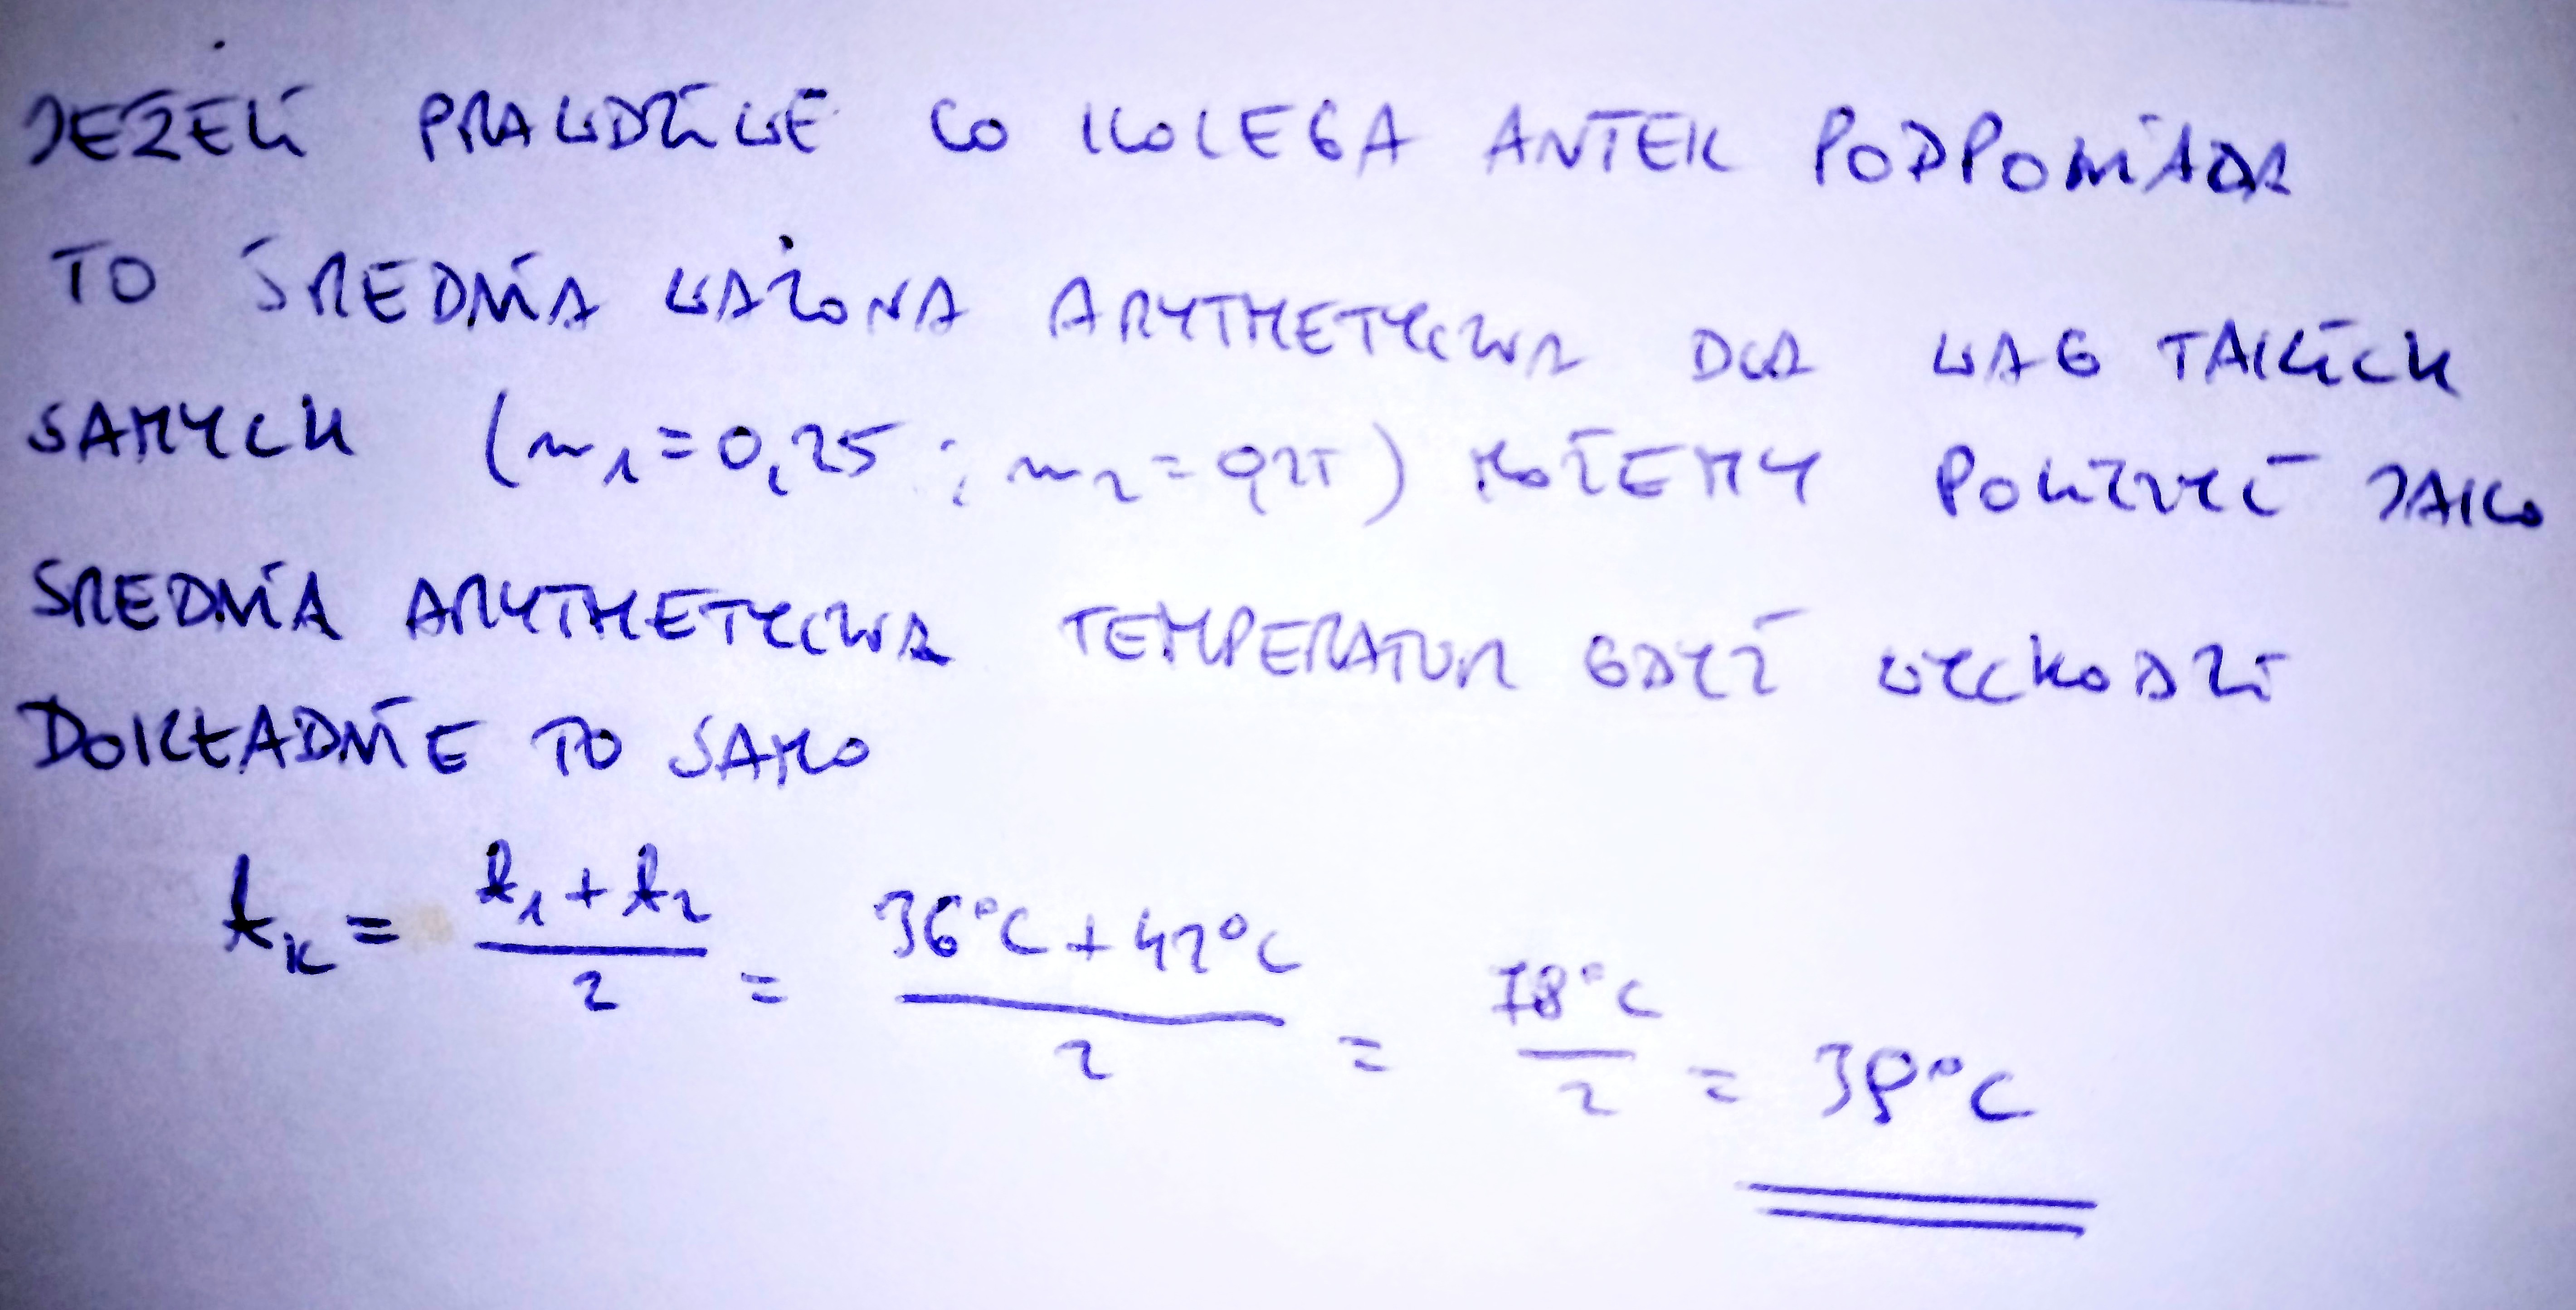 JEŻELI PRAWDZIWE CO KOLEGA ANTEK PODPOWIADA
TO ŚREDNIA WAŻONA ARYTMETYCZNA DLA WAG TAKICH
SAMYCH (m₁=0,25 ; m₂=0,25) MOŻEMY POLICZYĆ JAKO
ŚREDNIA ARYTMETYCZNA TEMPERATUR GDYŻ WYCHODZI
DOKŁADNIE TO SAMO
tₖ = (t₁+t₂)/2 = (36°C+42°C)/2 = 78°C/2 = 39°C